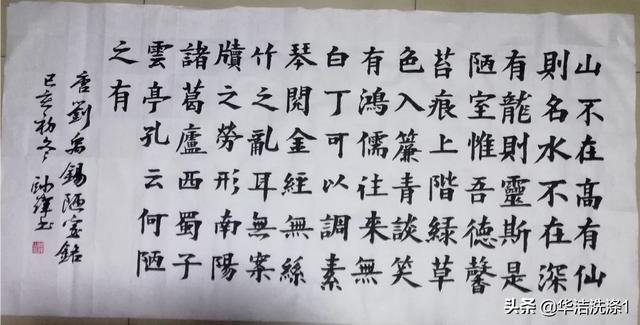 山不在高有仙
則名水不在深
有龍則靈斯是
陋室惟吾德馨
苔痕上階綠草
色入簾青談笑
有鴻儒往來無
白丁可以調素
琴閱金經無絲
竹之亂耳無案
牘之勞形南陽
諸葛廬西蜀子
雲亭孔云何陋
之有
唐劉禹錫陋室銘
己亥初冬
头条 @华洁洗涤1